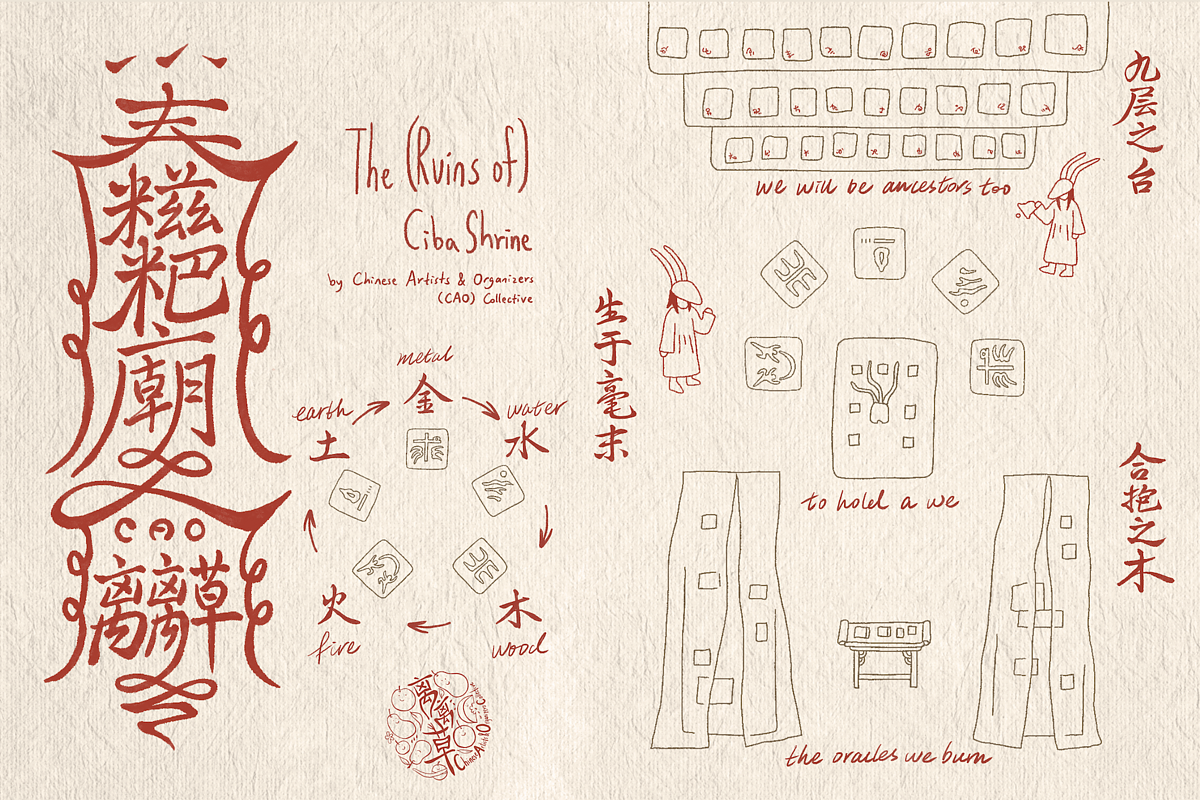 糍粑廟
CAO
離離草
The (Ruins of)
Ciba Shrine
by Chinese Artists & Organizers
(CAO) Collective
metal
金
earth
土
water
水
火
fire
木
wood
离离草
Chinese Artists & Organizers Collective
九层之台
we will be ancestors too
生于毫末
to hold a we
合抱之木
the oracles we burn